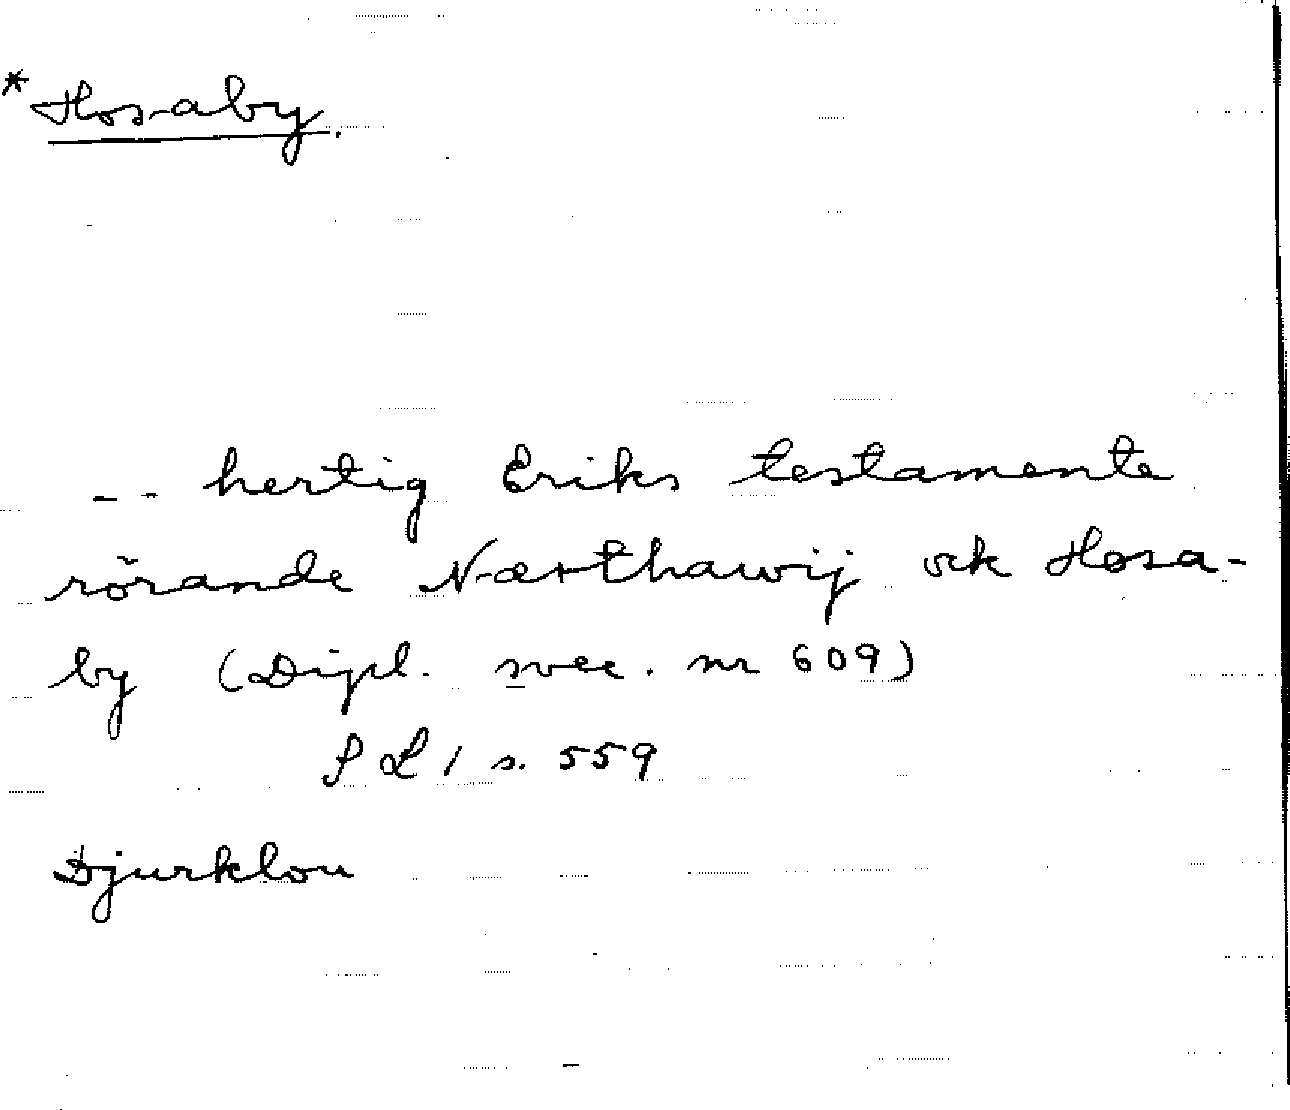 * Hosaby.
-- hertig Eriks testamente
rörande Nærthawij ock Hosa-
by (Dipl. svec. nr 609)
S L 1 s. 559
Djurklou